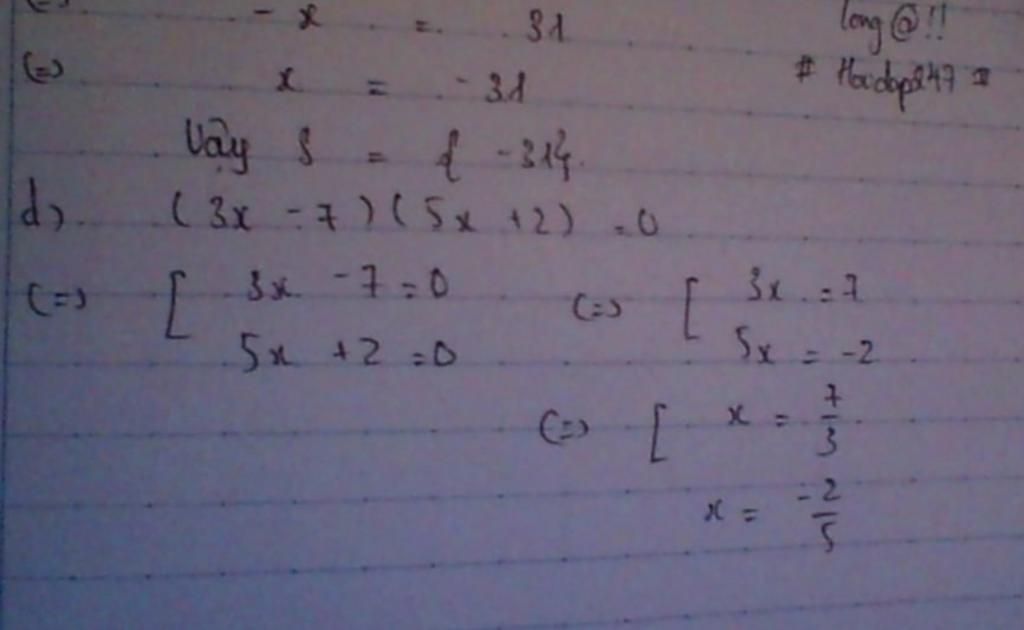 (=) - x = 31
long @!!
(=) x = -31
# Hoidap247 #
Vậy S = { -31}
d) (3x - 7)(5x + 2) = 0
(=) [ 3x - 7 = 0
5x + 2 = 0
(=) [ 3x = 7
5x = -2
(=) [ x = 7/3
x = -2/5